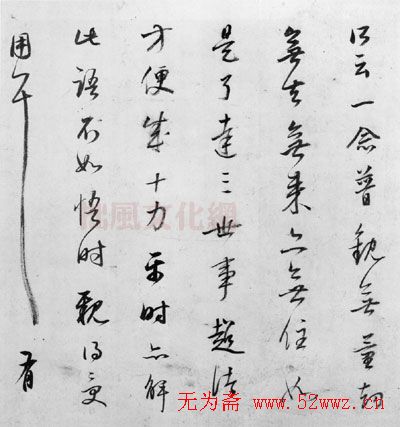 云一念普觀無量劫
無去無來亦無住如
是了達三世事超諸
方便成十力平時亦解
此語不如悟時親得受
用耳 有
拙風文化網
无为斋 www.52wwz.cn